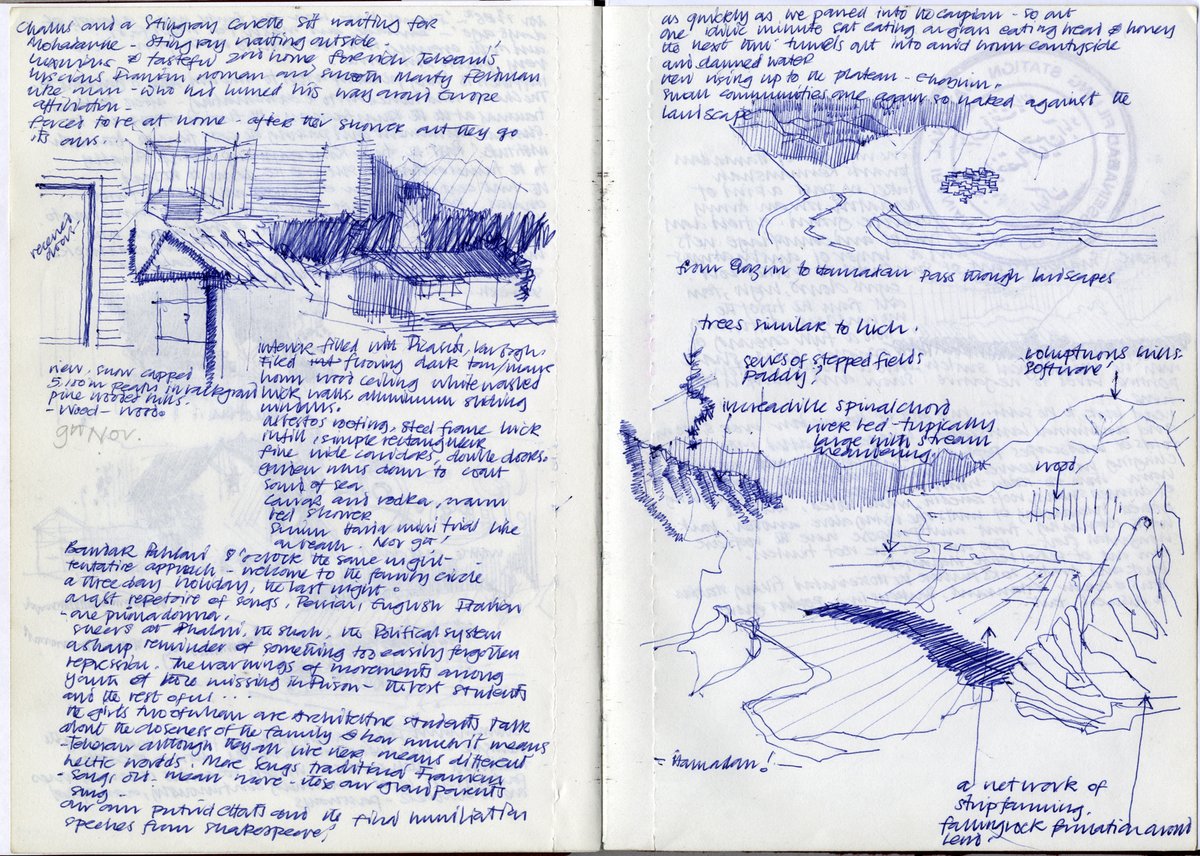 Chalus and a Stingray Corvette sit waiting for
Mohabanke - Stingray waiting outside.
Luxurious & tasteful 2nd home for rich Teheranis
luscious Iranian woman and smooth Marty Feldman
like man - who had hummed his way around Europe
affiliation -
forced to be at home - after their shower out they go
its ours.
recessed
door.
view, snow capped
5,100m peaks in background
pine wooded hills.
- Wood - wood.
9th Nov.
interior filled with Picasso, Van Gogh,
filled flowing dark tan/mauve
brown wood ceiling white washed
brick walls aluminium sliding
windows.
asbestos roofing, steel frame brick
infill, simple rectangular
fine wide corridors, double doors.
garden runs down to coast
sound of sea
caviar and vodka, warm
bed shower
mini trial like
Nov 9th!
Bandar Pahlavi 8 o'clock the same night -
tentative approach - welcome to the family circle
a three day holiday, the last night.
a vast repetoire of songs, Persian, English Iranian
- one primadonna.
sneers at Phalavi, the shah, the Political system
a sharp reminder of something too easily forgotten
repression. The warnings of movements among
youth of those missing in prison - the best students
and the rest of us ...
the girls two of whom are Architecture students talk
about the closeness of the family & how much it means
- Teheran although they all live here means different
hectic worlds. More songs traditional Iranian
- songs our mean more - those our grandparents
sung -
our own putrid efforts and the final humiliation
speeches from Shakespeare!
as quickly as we passed into the caspian - so out
one idyllic minute sat eating on grass eating bread & honey
the next thru' tunnels out into arid brown countryside
and dammed water
now rising up to the plateau - Ghazvin.
small communities once again so naked against the
landscape
from Qazvin to Hamadan pass through landscapes
trees similar to birch.
series of stepped fields
Paddy?
voluptuous hills.
software!
increadible spinal chord
river bed - typically
large with stream
meandering.
wood
- Hamadan! -
a network of
strip farming.
falling rock formation around